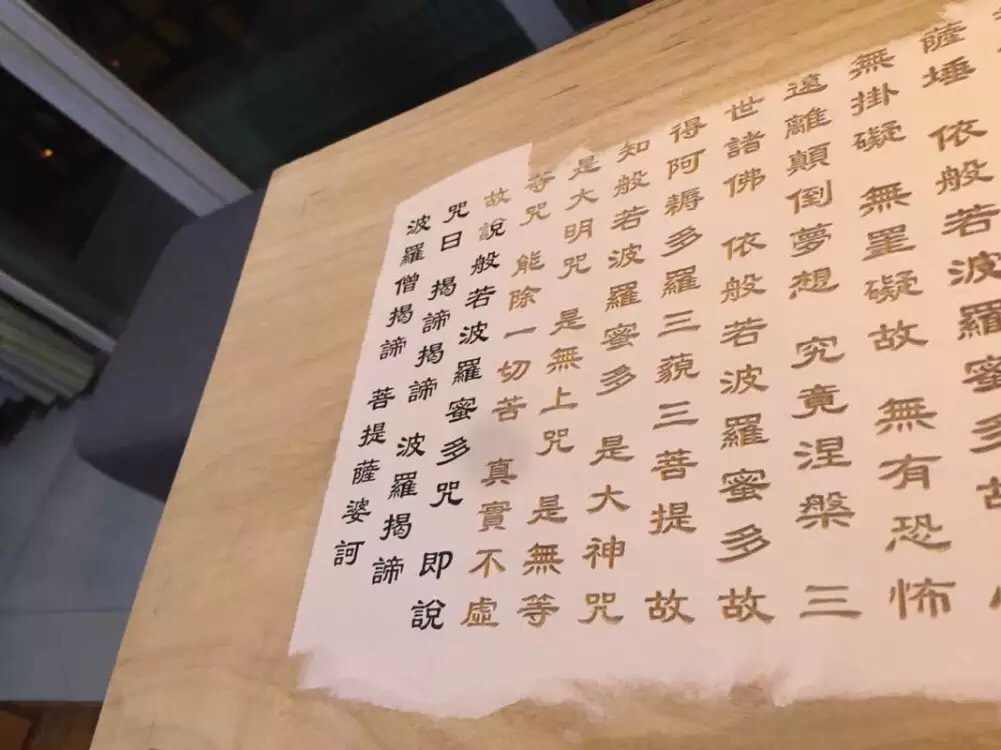 薩埵 依般若波羅蜜多故
無掛礙 無罣礙故 無有恐怖
遠離顛倒夢想 究竟涅槃 三
世諸佛 依般若波羅蜜多故
得阿耨多羅三藐三菩提 故
知般若波羅蜜多 是大神咒
是大明咒 是無上咒 是無等
等咒 能除一切苦 真實不虛
故說般若波羅蜜多咒 即說
咒曰 揭諦揭諦 波羅揭諦
波羅僧揭諦 菩提薩婆訶